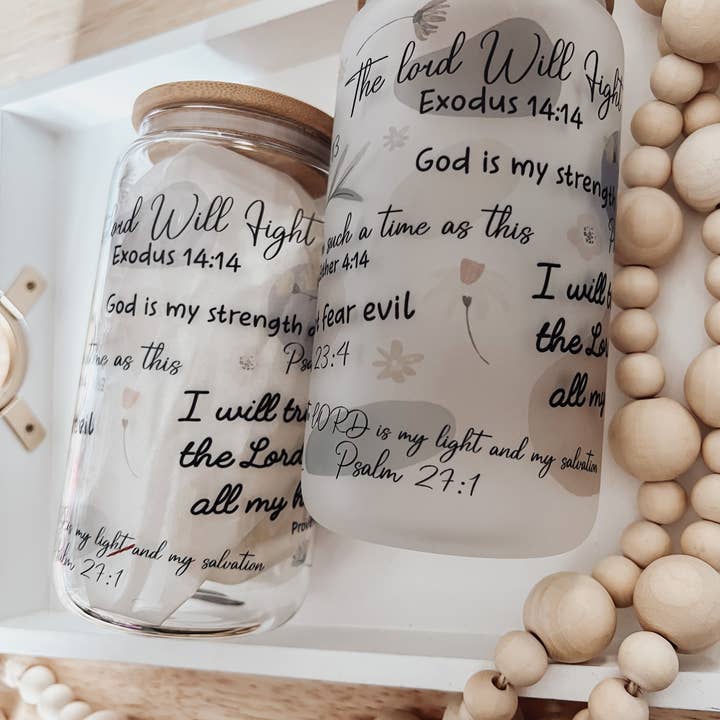 ord Will Fight
Exodus 14:14
God is my strength
me as this
evil
I will tr
the Lord
all my h
Prove
is my light and my salvation
alm 27:1
The lord Will Fight
Exodus 14:14
God is my strength
such a time as this
ther 4:14
fear evil
Psa 23:4
I will t
the Lo
all my
LORD is my light and my salvation
Psalm 27:1